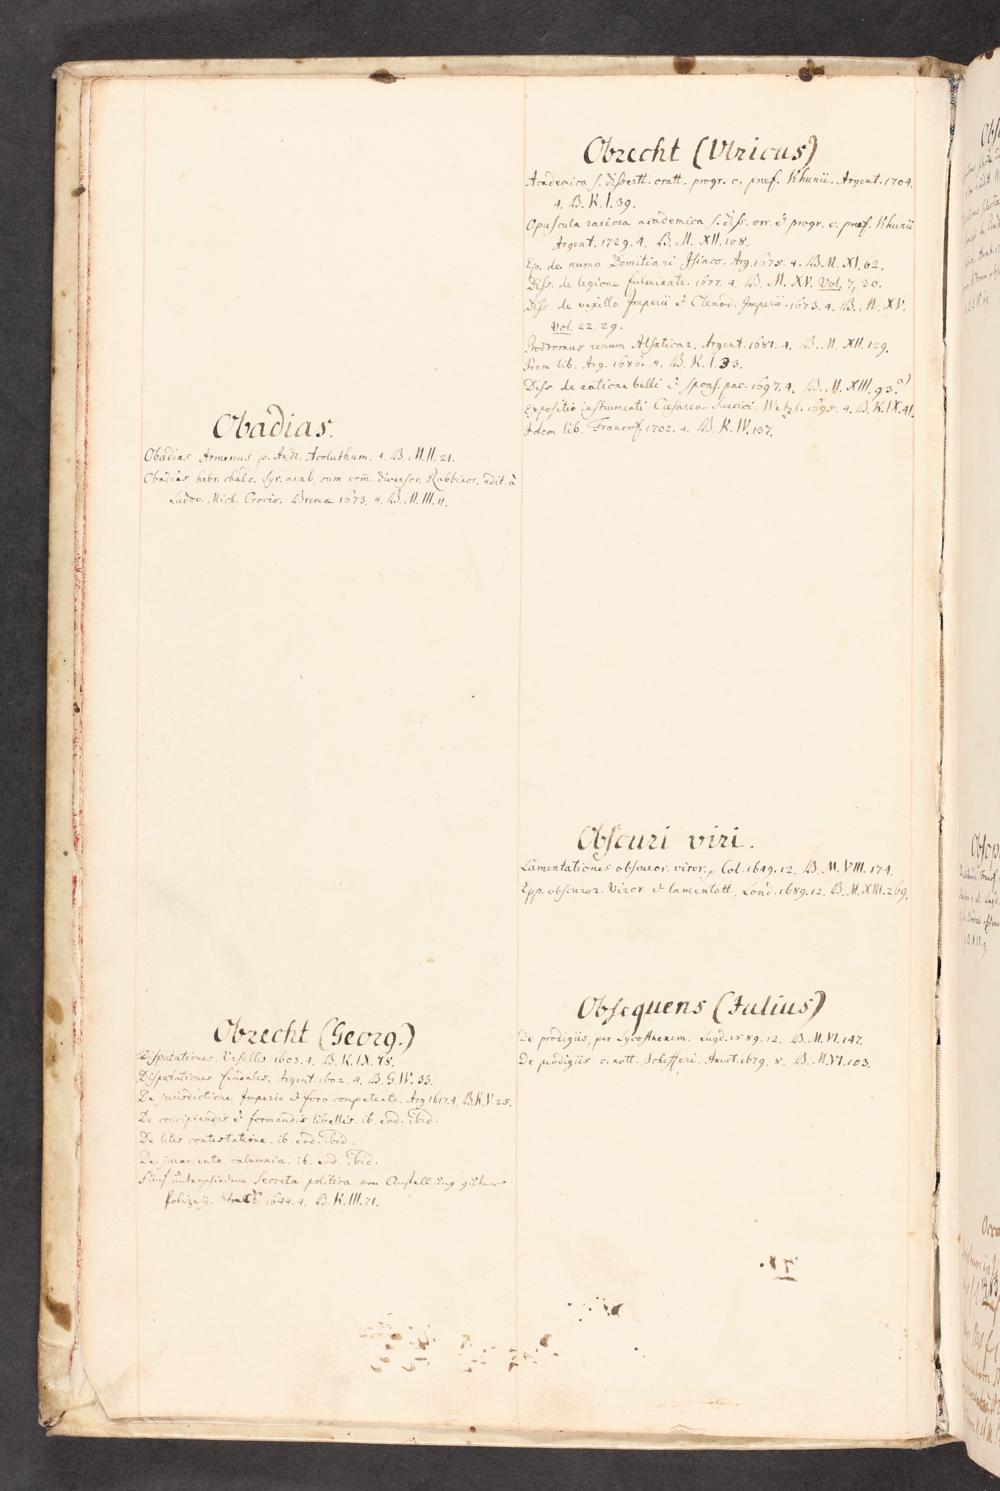 Obadias.
Obadias Armenus p. Andr. Acoluthum. 4. B. M. II. 21.
Obadias hebr. chald. syr. arab. cum com̄. diversor. Rabbinor. edit. à
Ludov. Mich. Crocio. Bremæ 1673. 4. B. M. III. 11.
Obrecht (Georg.)
Disputationes. Urſellis 1603. 4. B. K. IX. 78.
Disputationes feudales. Argent. 1602. 4. B. G. IV. 33.
De jurisdictione, Imperio & foro competente. Arg. 1617. 4. B. K. V. 25.
De concipiendis & formandis libellis. ib. eod. ibid.
De litis contestatione. ib. eod. ibid.
De juramento calumniæ. ib. eod. ibid.
Fünf Secreta politica von Anstellung guter
Polizeÿ. Strasb. 1644. 4. B. K. III. 71.
Obrecht (Ulricus)
Academica ſ. diſſertt. oratt. progr. c. præf. Khunii. Argent. 1704.
4. B. K. I. 39.
Opuſcula rariora academica ſ. diſſ. orr. & progr. c. præf. Khunii
Argent. 1729. 4. B. M. XII. 108.
Ep. de numo Domitiani Iſiaco. Arg. 1675. 4. B. M. XI. 62.
Diſſ. de legione fulminate. 1677. 4. B. M. XV. Vol. 7, 30.
Diſſ. de vexillo Imperii & Clenod. Imperii. 1673. 4. B. M. XV.
Vol. 22. 29.
Prodromus rerum Alſaticar. Argent. 1681. 4. B. M. XII. 129.
Idem lib. Arg. 1686. 4. B. K. I. 33.
Diſſ. de ratione belli & ſponſ. pac. 1697. 4. B. M. XIII. 93. a)
Expoſitio inſtrumenti Cæſareo-Suecici. Wetzl. 1695. 4. B. K. IX. 41.
Idem lib. Francof. 1702. 4. B. K. IV. 137.
Obſcuri viri.
Lamentationes obſcuror. viror. Col. 1649. 12. B. M. VIII. 174.
Epp. obſcuror. Viror. & lamentatt. Lond. 1689. 12. B. M. XIII. 269.
Obſequens (Julius)
De prodigiis, per Lycoſthenem. Lugd. 1589. 12. B. M. VI. 147.
De prodigiis c. nott. Schefferi. Amst. 1679. 8. B. M. VI. 103.